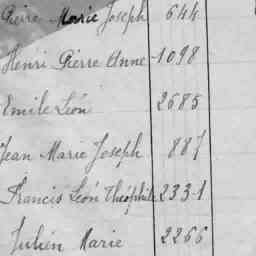 Pierre Marie Joseph 644
Henri Pierre Anne 1098
Emile Léon 2685
Jean Marie Joseph 887
Francis Léon Théophile 2331
Julien Marie 2266